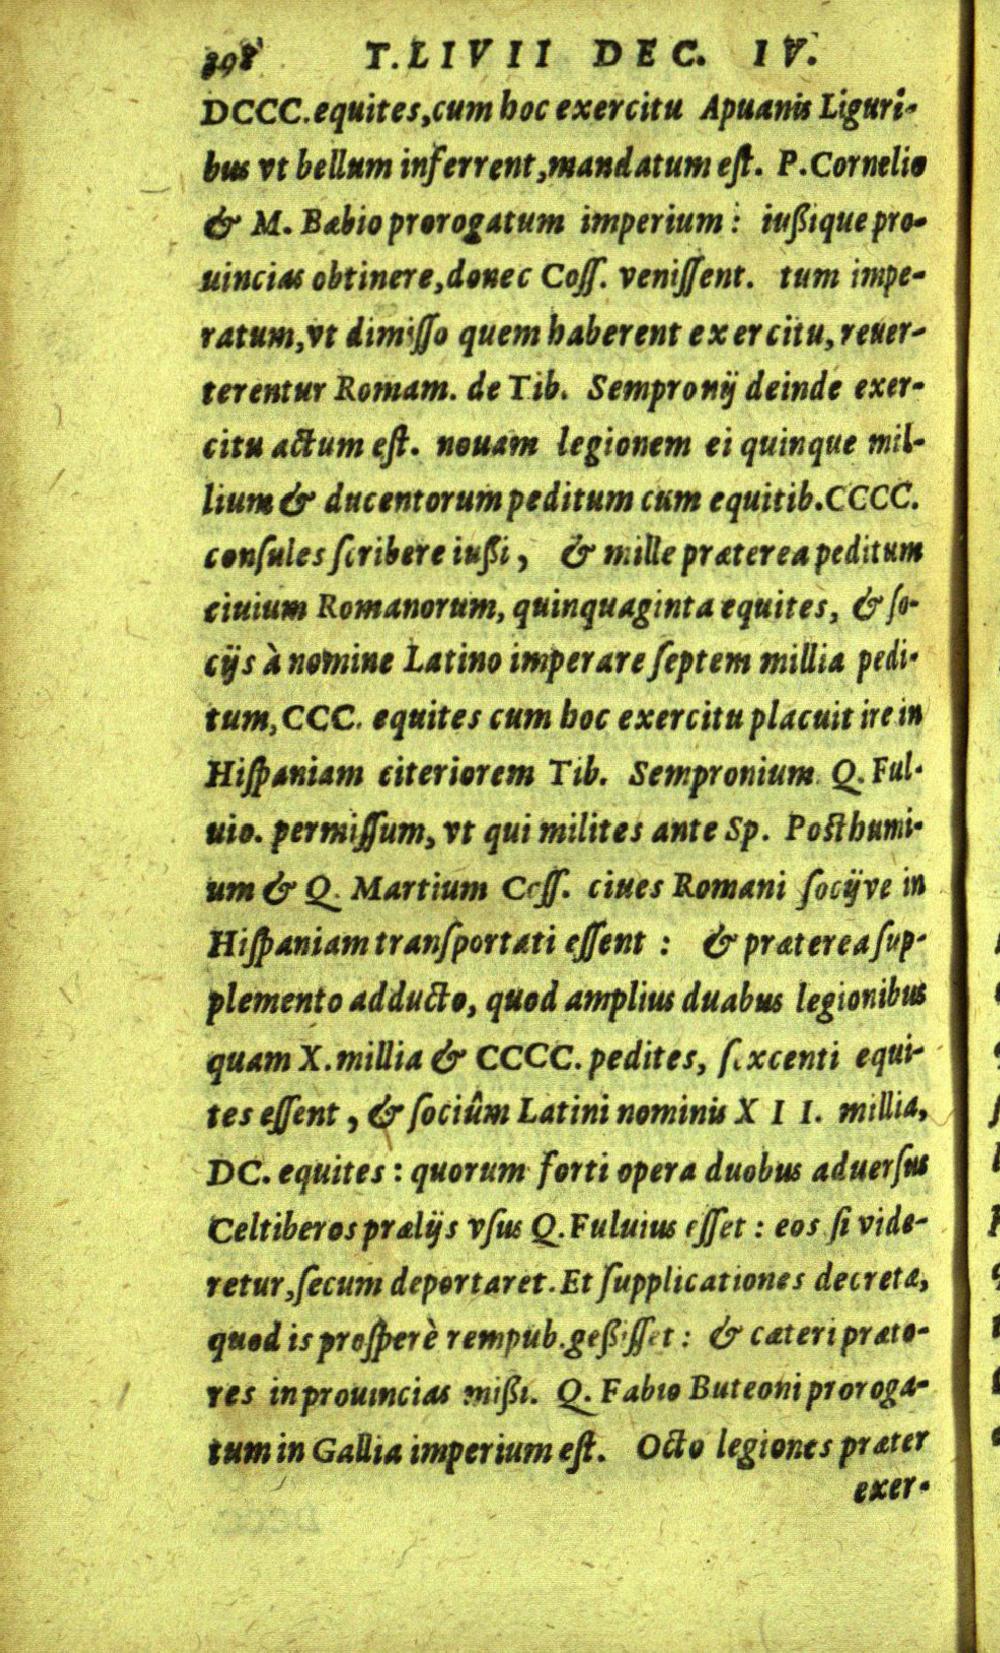 398 T. LIVII DEC. IV.
DCCC. equites, cum hoc exercitu Apuanis Liguri-
bus vt bellum inferrent, mandatum eſt. P. Cornelio
& M. Bæbio prorogatum imperium: iußique pro-
uincias obtinere, donec Coſſ. veniſſent. tum impe-
ratum, vt dimiſſo quem haberent exercitu, reuer-
terentur Romam. de Tib. Sempronij deinde exer-
citu actum eſt. nouam legionem ei quinque mil-
lium & ducentorum peditum cum equitib. CCCC.
conſules ſcribere iußi, & mille præterea peditum
ciuium Romanorum, quinquaginta equites, & ſo-
cijs à nomine Latino imperare ſeptem millia pedi-
tum, CCC. equites cum hoc exercitu placuit ire in
Hiſpaniam citeriorem Tib. Sempronium Q. Ful-
uio. permiſſum, vt qui milites ante Sp. Posthumi-
um & Q. Martium Coſſ. ciues Romani ſocijve in
Hiſpaniam tranſportati eſſent: & præterea ſup-
plemento adducto, quod amplius duabus legionibus
quam X. millia & CCCC. pedites, ſexcenti equi-
tes eſſent, & ſociûm Latini nominis XII. millia,
DC. equites: quorum forti opera duobus aduerſus
Celtiberos prælijs vſus Q. Fuluius eſſet: eos ſi vide-
retur, ſecum deportaret. Et ſupplicationes decretæ,
quod is proſperè rempub. geßiſſet: & cæteri præto-
res in prouincias mißi. Q. Fabio Buteoni proroga-
tum in Gallia imperium eſt. Octo legiones præter
exer-